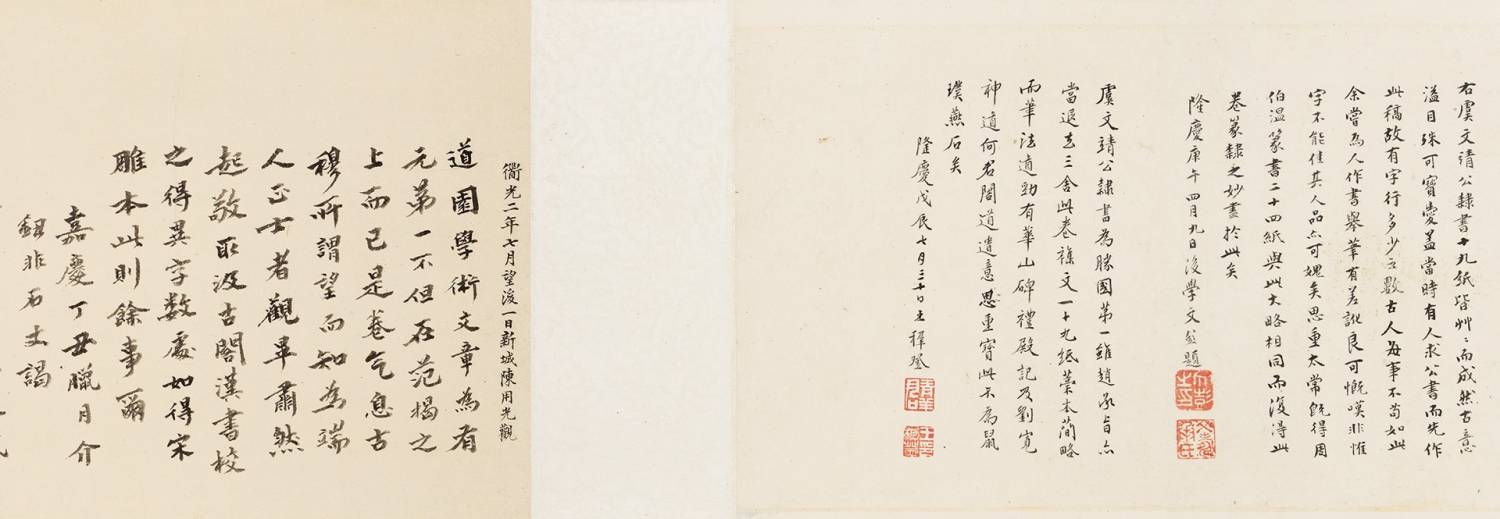 右虞文靖公隸書十九紙皆艸艸而成然古意
溢目殊可寶愛蓋當時有人求公書而先作
此稿故有字行多少之數古人每事不苟如此
余嘗為人作書舉筆有差訛良可慨嘆非惟
字不能佳其人品亦可媿矣思重太常既得周
伯溫篆書二十四紙與此大略相同而復得此
卷篆隸之妙盡於此矣
隆慶庚午四月九日後學文彭題
虞文靖公隸書為勝國第一雖趙承旨亦
當退去三舍此卷雜文一十九紙藁本簡略
而筆法遒勁有華山碑禮殿記及劉寬
神道何君閣道遺意思重寶此不為鼠
璞燕石矣
隆慶戊辰七月三十日王穉登
衜光二年七月望後一日新城陳用光觀
道園學術文章為有
元第一不但在范揭之
上而已是卷气息古
穆所謂望而知為端
人正士者觀畢肅然
起敬取汲古閣漢書校
之得異字數處如得宋
雕本此則餘事爾
嘉慶丁丑臘月介
鈕非石丈謁